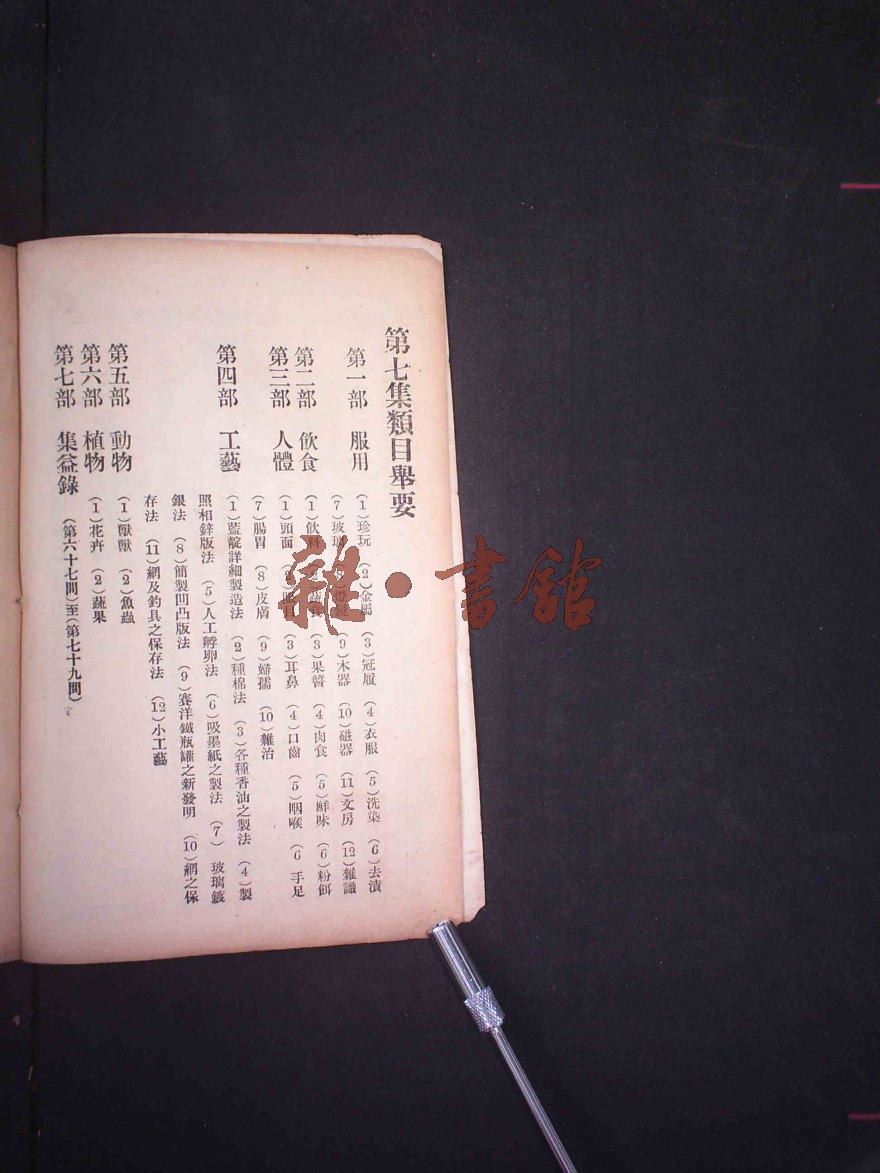 第七集類目舉要
第一部 服用 (1)珍玩 (2)金屬 (3)冠履 (4)衣服 (5)洗染 (6)去漬
(7)玻璃 (9)木器 (10)磁器 (11)文房 (12)雜識
第二部 飲食 (1)飲料 (3)果醬 (4)肉食 (5)鮮味 (6)粉餌
第三部 人體 (1)頭面 (3)耳鼻 (4)口齒 (5)咽喉 (6 手足
(7)腸胃 (8)皮膚 (9)婦孺 (10)雜治
第四部 工藝 (1)藍靛詳細製造法 (2)種棉法 (3)各種香油之製法 (4)製
照相鋅版法 (5)人工孵卵法 (6)吸墨紙之製法 (7) 玻璃鍍
銀法 (8)簡製凹凸版法 (9)賽洋鐵瓶罐之新發明 (10)網之保
存法 (11)網及釣具之保存法 (12)小工藝
第五部 動物 (1)獸 (2)魚蟲
第六部 植物 (1)花卉 (2)蔬果
第七部 集益錄 (第六十七問)至(第七十九問)
雜·書館